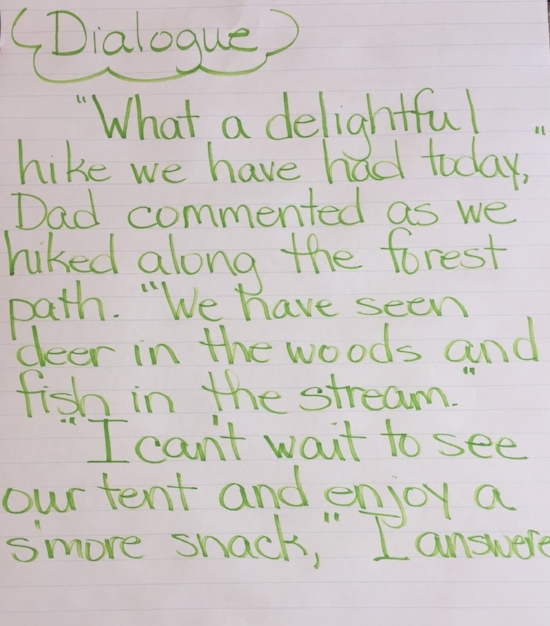 Dialogue
"What a delightful
hike we have had today,"
Dad commented as we
hiked along the forest
path. "We have seen
deer in the woods and
fish in the stream."
"I can't wait to see
our tent and enjoy a
s'more snack," I answere